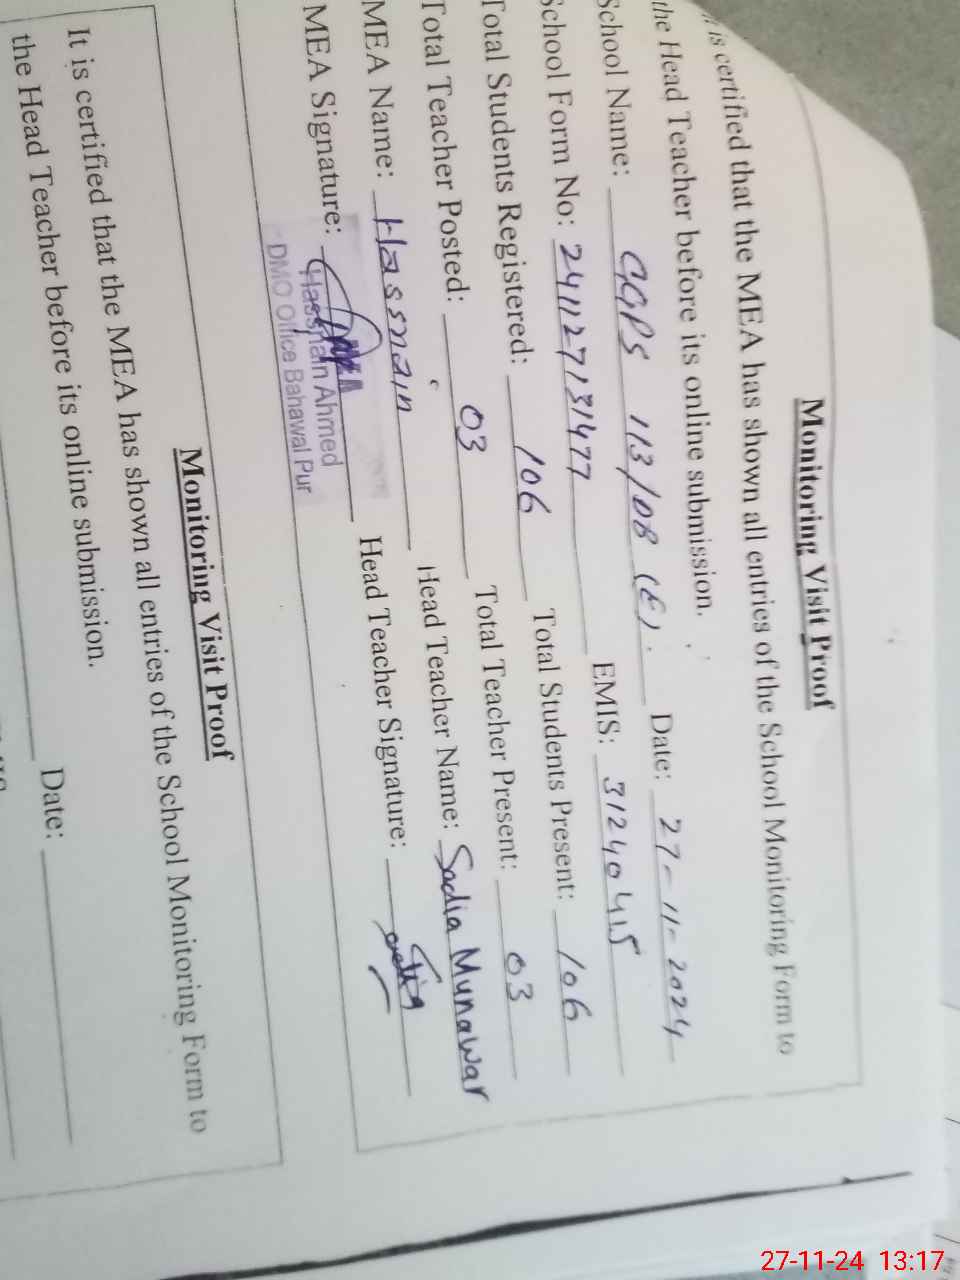 Monitoring Visit Proof
It is certified that the MEA has shown all entries of the School Monitoring Form to
the Head Teacher before its online submission.
School Name: GGPS 113/DB (E). Date: 27-11-2024
School Form No: 241127131477 EMIS: 31240415
Total Students Registered: 106 Total Students Present: 106
Total Teacher Posted: 03 Total Teacher Present: 03
MEA Name: Hassnain Head Teacher Name: Sadia Munawar
MEA Signature: Head Teacher Signature:
MEA
Hassnain Ahmed
DMO Office Bahawal Pur
Monitoring Visit Proof
It is certified that the MEA has shown all entries of the School Monitoring Form to
the Head Teacher before its online submission.
Date:
27-11-24 13:17